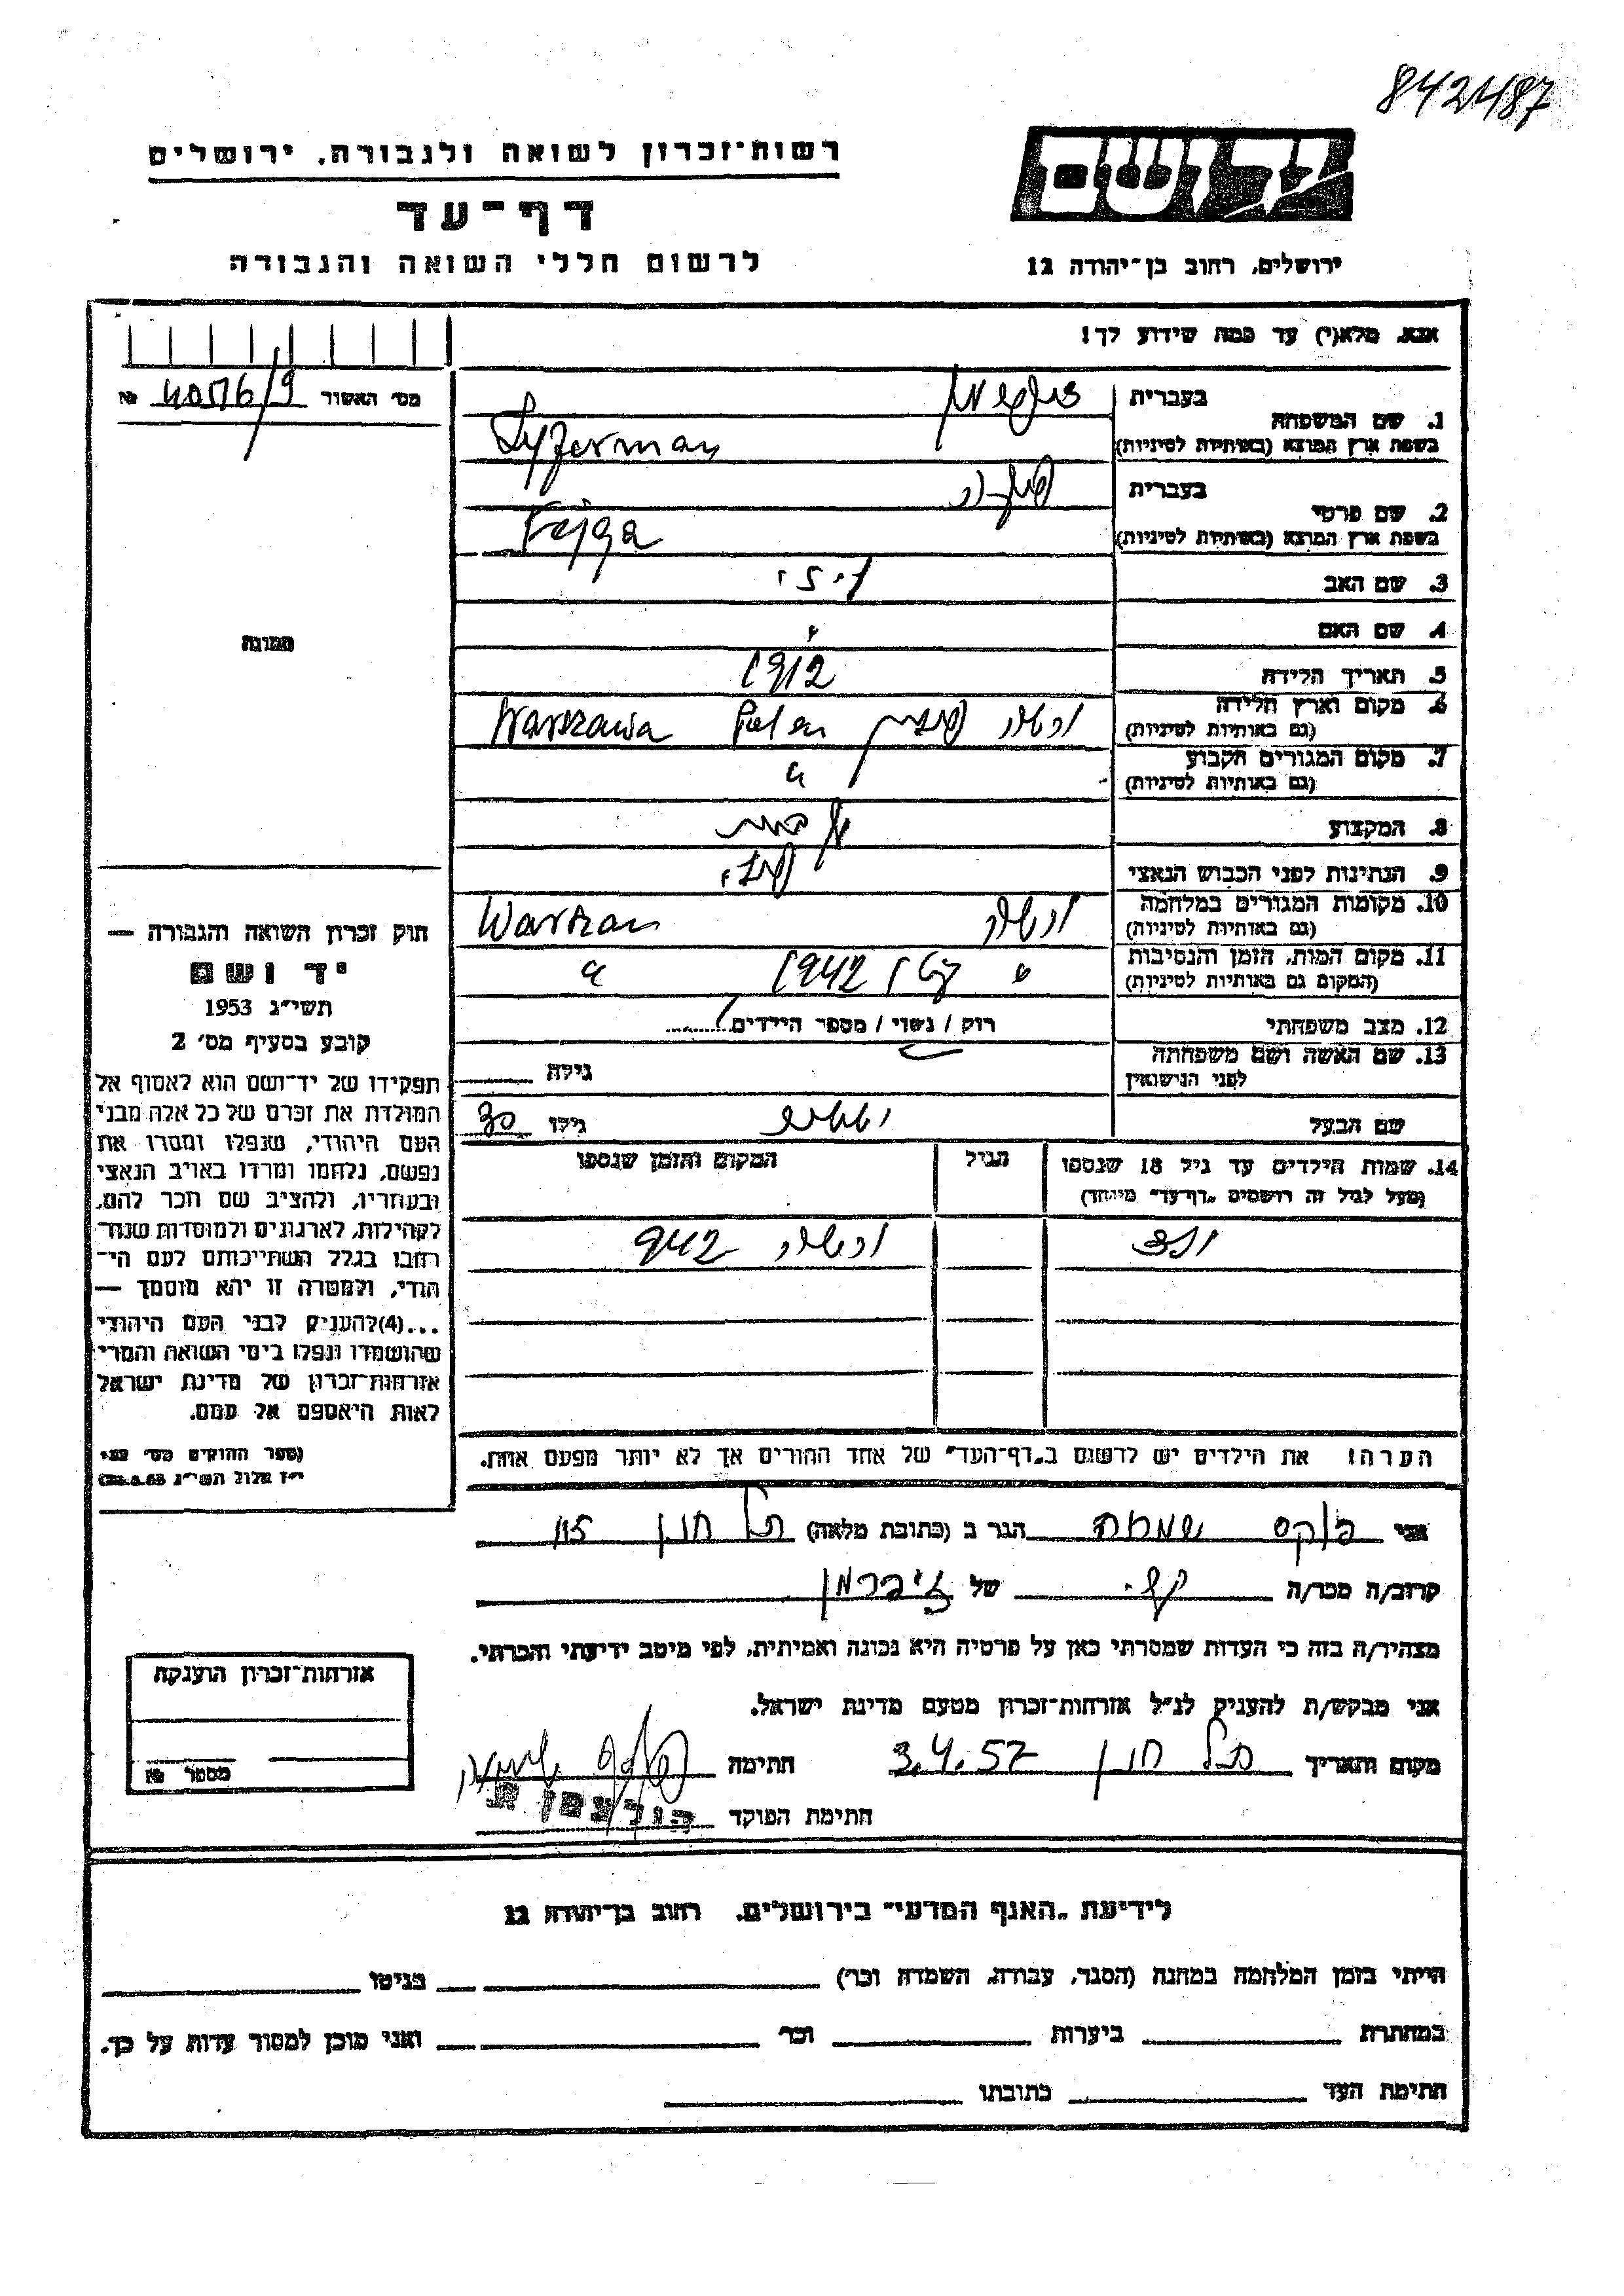 842487
רשות־זכרון לשואה ולגבורה, ירושלים
יד ושם
דף־עד
לרשום חללי השואה והגבורה
ירושלים, רחוב בן־יהודה 12
אנא, מלא(י) עד כמה שידוע לך!
מס׳ האשור № /9
1. שם המשפחה
בעברית
בשפת ארץ המוצא (באותיות לטיניות)
2. שם פרטי
בעברית
בשפת ארץ המוצא (באותיות לטיניות) Fajga
3. שם האב
4. שם האם "
5. תאריך הלידה 1912
6. מקום וארץ הלידה (גם באותיות לטיניות) ורשה פולין Polen Warszawa
7. מקום המגורים הקבוע (גם באותיות לטיניות) "
8. המקצוע
9. הנתינות לפני הכבוש הנאצי פולני
10. מקומות המגורים במלחמה (גם באותיות לטיניות) ורשה Warszau
11. מקום המות, הזמן והנסיבות (המקום גם באותיות לטיניות) " 1942 "
12. מצב משפחתי רוק / נשוי / מספר הילדים
13. שם האשה ושם משפחתה לפני הנישואין גילה
שם הבעל גילו 30
14. שמות הילדים עד גיל 18 שנספו (מעל לגיל זה רושמים „דף־עד״ מיוחד) הגיל המקום והזמן שנספו
ורשה 942
הערה! את הילדים יש לרשום ב„דף־העד״ של אחד ההורים אך לא יותר מפעם אחת.
תמונה
חוק זכרון השואה והגבורה —
יד ושם
תשי״ג 1953
קובע בסעיף מס׳ 2
תפקידו של יד־ושם הוא לאסוף אל
המולדת את זכרם של כל אלה מבני
העם היהודי, שנפלו ומסרו את
נפשם, נלחמו ומרדו באויב הנאצי
ובעוזריו, ולהציב שם וזכר להם,
לקהילות, לארגונים ולמוסדות שנח־
רחבו בגלל השתייכותם לעם הי־
הודי, ולמטרה זו יהא מוסמך —
...(4) להעניק לבני העם היהודי
שהושמדו ונפלו בימי השואה והמרי
אזרחות־זכרון של מדינת ישראל
לאות היאספם אל עמם.
(ספר החוקים מס׳ 132
י״ז אלול תשי״ג 28.8.53)
אני הגר ב (כתובת מלאה) תל חנן
קרוב/ה מכר/ה של
מצהיר/ה בזה כי העדות שמסרתי כאן על פרטיה היא נכונה ואמיתית, לפי מיטב ידיעתי והכרתי.
אני מבקש/ת להעניק לנ״ל אזרחות־זכרון מטעם מדינת ישראל.
מקום ותאריך תל חנן 3.4.57 חתימה
חתימת הפוקד
אזרחות־זכרון הוענקה
מספר №
לידיעת „האגף המדעי״ בירושלים, רחוב בן־יהודה 12
הייתי בזמן המלחמה במחנה (הסגר, עבודה, השמדה וכו׳) בגיטו
במחתרת ביערות וכו׳ ואני מוכן למסור עדות על כך.
חתימת העד כתובתו